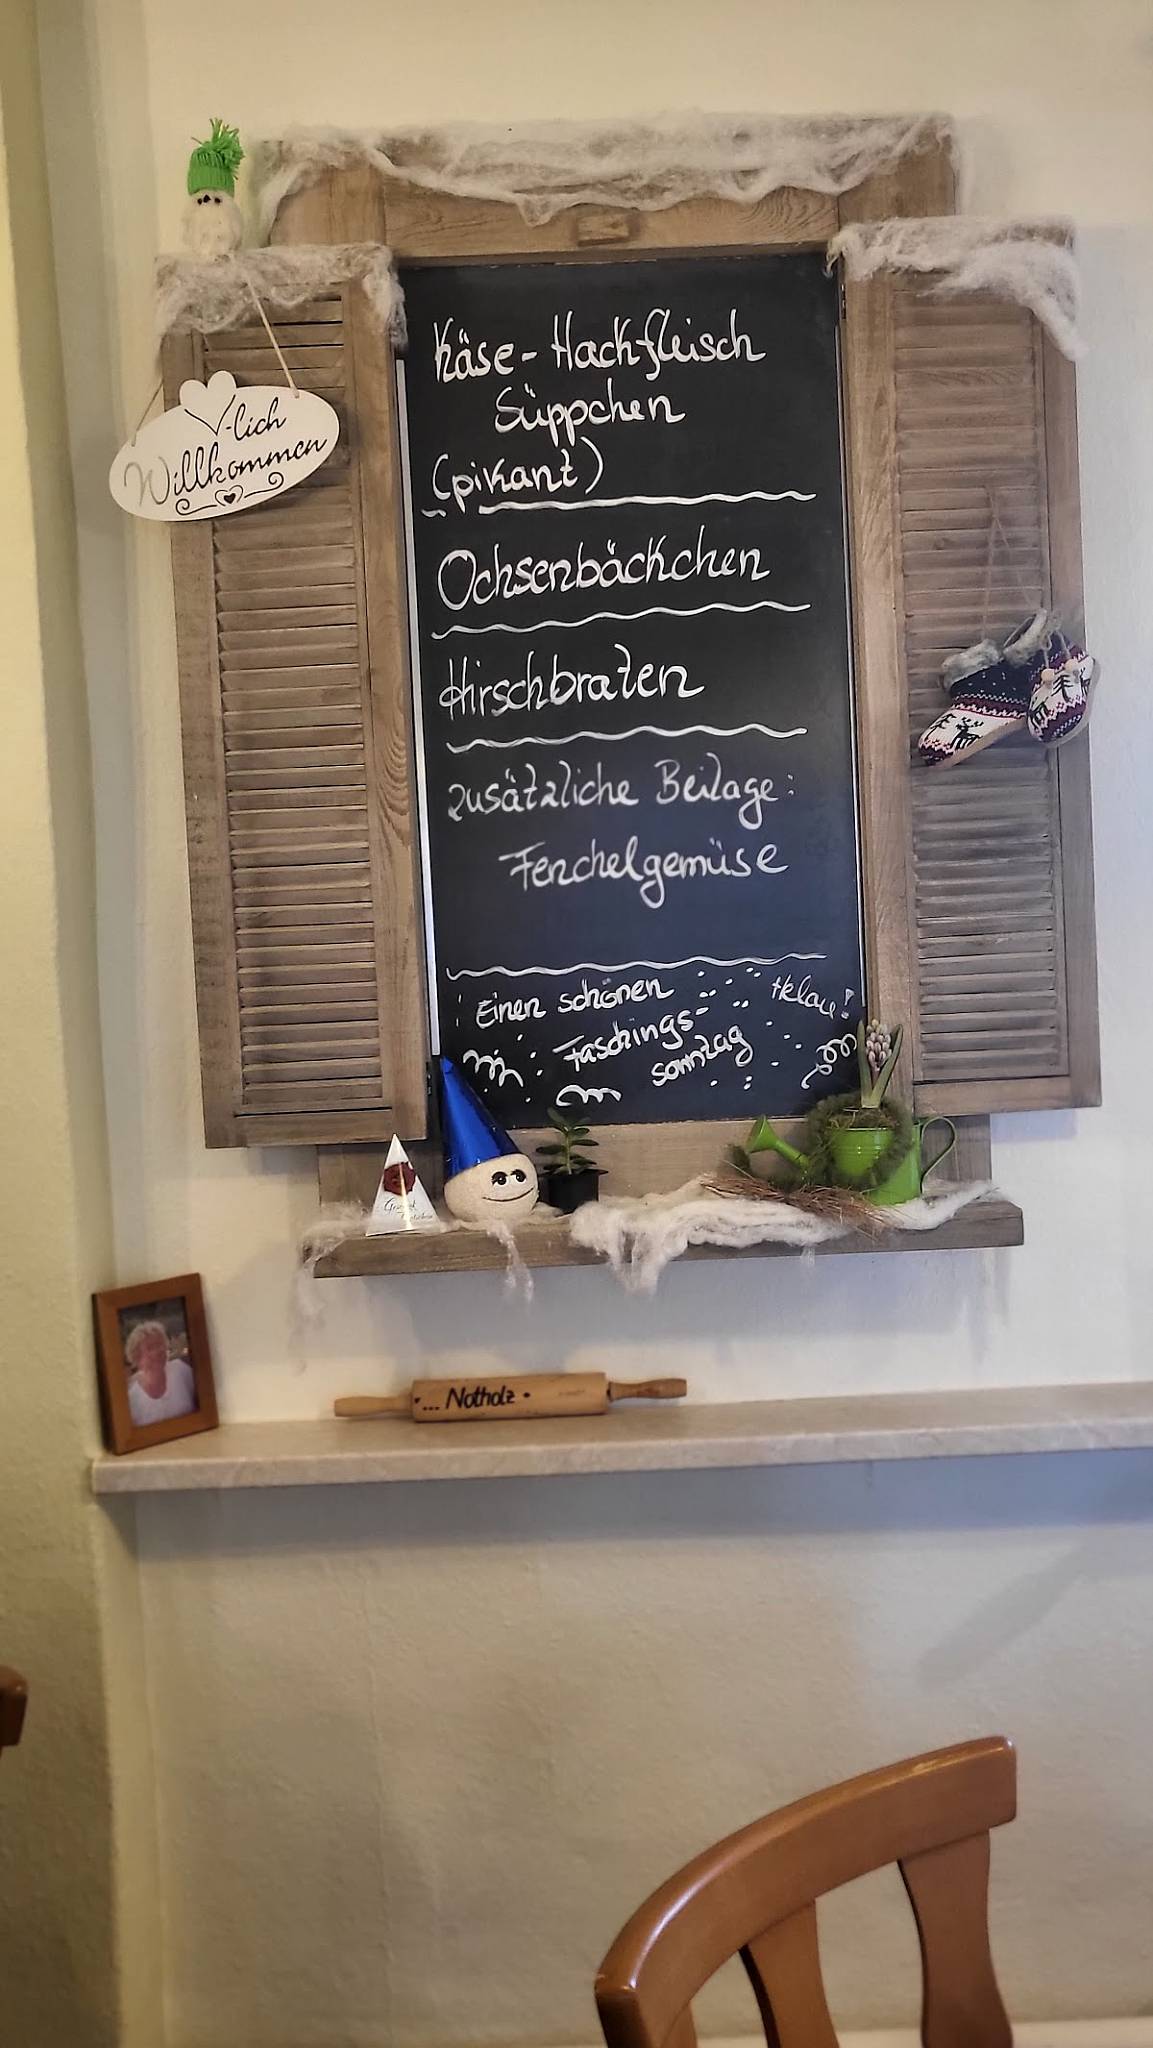 Käse-Hackfleisch
Süppchen
(pikant)
Ochsenbäckchen
Hirschbraten
zusätzliche Beilage:
Fenchelgemüse
Einen schönen
Helau!
Faschings-
sonntag
-lich
Willkommen
... Notholz